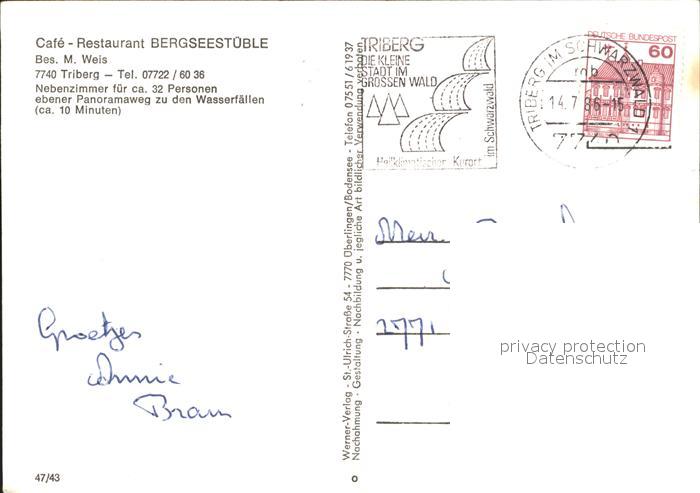 Café - Restaurant BERGSEESTÜBLE
Bes. M. Weis
7740 Triberg – Tel. 07722 / 60 36
Nebenzimmer für ca. 32 Personen
ebener Panoramaweg zu den Wasserfällen
(ca. 10 Minuten)
Groetjes
Annie
Bram
47/43
Werner-Verlag - St.-Ulrich-Straße 54 - 7770 Überlingen/Bodensee - Telefon 07551/61937
Nachahmung - Gestaltung - Nachbildung u. jegliche Art bildlicher Verwendung verboten
TRIBERG
DIE KLEINE
STADT IM
GROSSEN WALD
Heilklimatischer Kurort
im Schwarzwald
TRIBERG IM SCHWARZWALD 1
rb
14.7.86-15
7740
DEUTSCHE BUNDESPOST
60
Mevr.
2771
privacy protection
Datenschutz